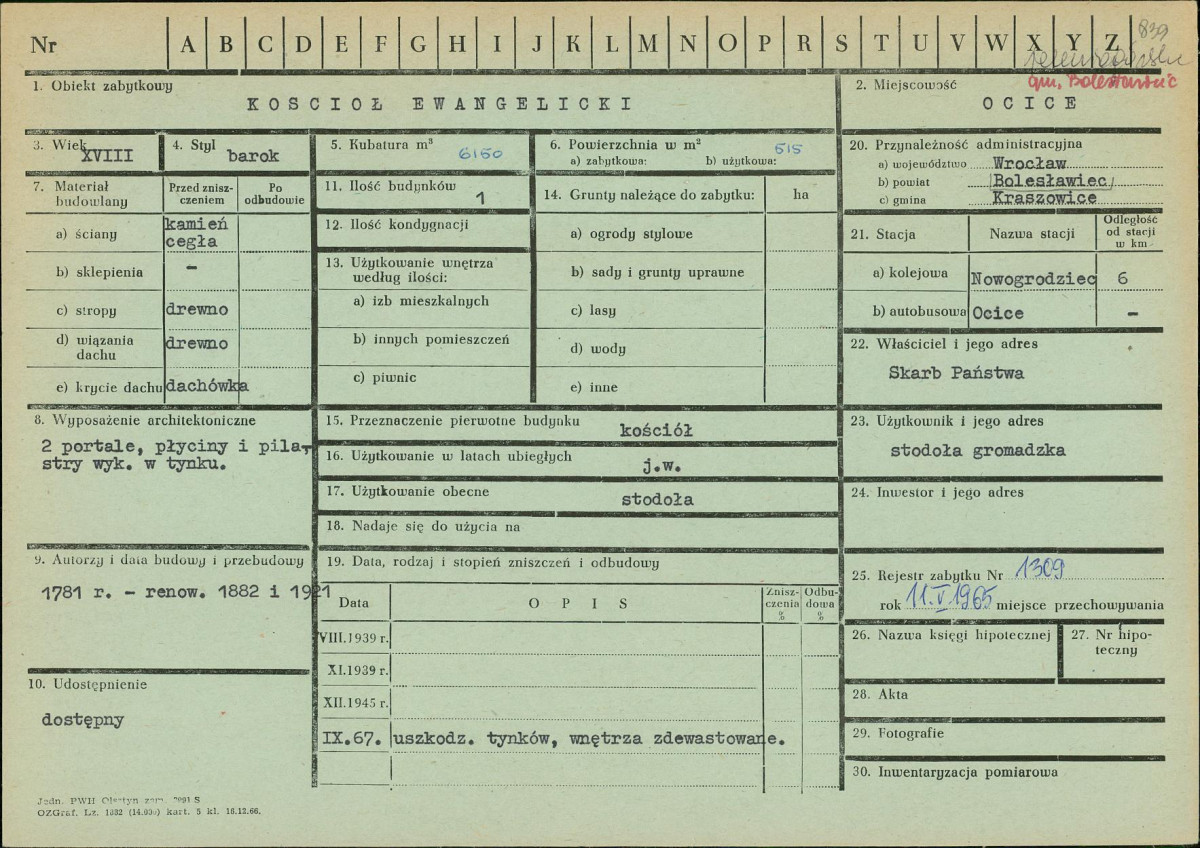 839
Nr A B C D E F G H I J K L M N O P R S T U V W X Y Z
jeleniogórskie
gm. Bolesławiec
1. Obiekt zabytkowy
KOSCIOŁ EWANGELICKI
2. Miejscowość
OCICE
3. Wiek
XVIII
4. Styl
barok
5. Kubatura m³
6150
6. Powierzchnia w m²
a) zabytkowa: b) użytkowa:
515
20. Przynależność administracyjna
a) województwo Wrocław
b) powiat Bolesławiec
c) gmina Kraszowice
7. Materiał budowlany
Przed zniszczeniem
Po odbudowie
a) ściany kamień
cegła
b) sklepienia –
c) stropy drewno
d) wiązania dachu drewno
e) krycie dachu dachówka
11. Ilość budynków
1
12. Ilość kondygnacji
13. Użytkowanie wnętrza
według ilości:
a) izb mieszkalnych
b) innych pomieszczeń
c) piwnic
14. Grunty należące do zabytku: ha
a) ogrody stylowe
b) sady i grunty uprawne
c) lasy
d) wody
e) inne
21. Stacja Nazwa stacji Odległość od stacji w km
a) kolejowa Nowogrodziec 6
b) autobusowa Ocice –
22. Właściciel i jego adres
Skarb Państwa
8. Wyposażenie architektoniczne
2 portale, płyciny i pila-
stry wyk. w tynku.
15. Przeznaczenie pierwotne budynku
kościół
16. Użytkowanie w latach ubiegłych
j.w.
17. Użytkowanie obecne
stodoła
18. Nadaje się do użycia na
23. Użytkownik i jego adres
stodoła gromadzka
24. Inwestor i jego adres
9. Autorzy i data budowy i przebudowy
1781 r. – renow. 1882 i 1921
19. Data, rodzaj i stopień zniszczeń i odbudowy
Data OPIS Zniszczenia % Odbudowa %
VIII.1939 r.
XI.1939 r.
XII.1945 r.
IX.67. uszkodz. tynków, wnętrza zdewastowane.
25. Rejestr zabytku Nr 1309
rok 11.V.1965 miejsce przechowywania
26. Nazwa księgi hipotecznej
27. Nr hipo-
teczny
10. Udostępnienie
dostępny
28. Akta
29. Fotografie
30. Inwentaryzacja pomiarowa
Jedn. PWH Olsztyn zam. S
OZGraf. Lz. 1882 (14.000) kart. 5 kl. 16.12.66.